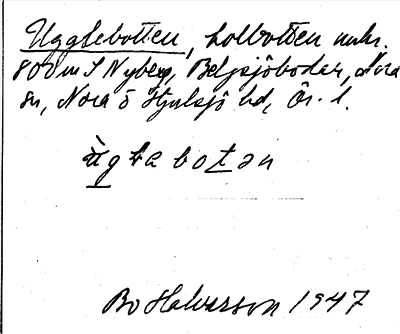 Ugglebotten, kolbotten unhr.
800 m S Nyberg, Beljsjöbodar, Nora
sn, Nora o Hjulsjö bd, Ör. l.
ùglabotən
Bo Halvarsson 1947